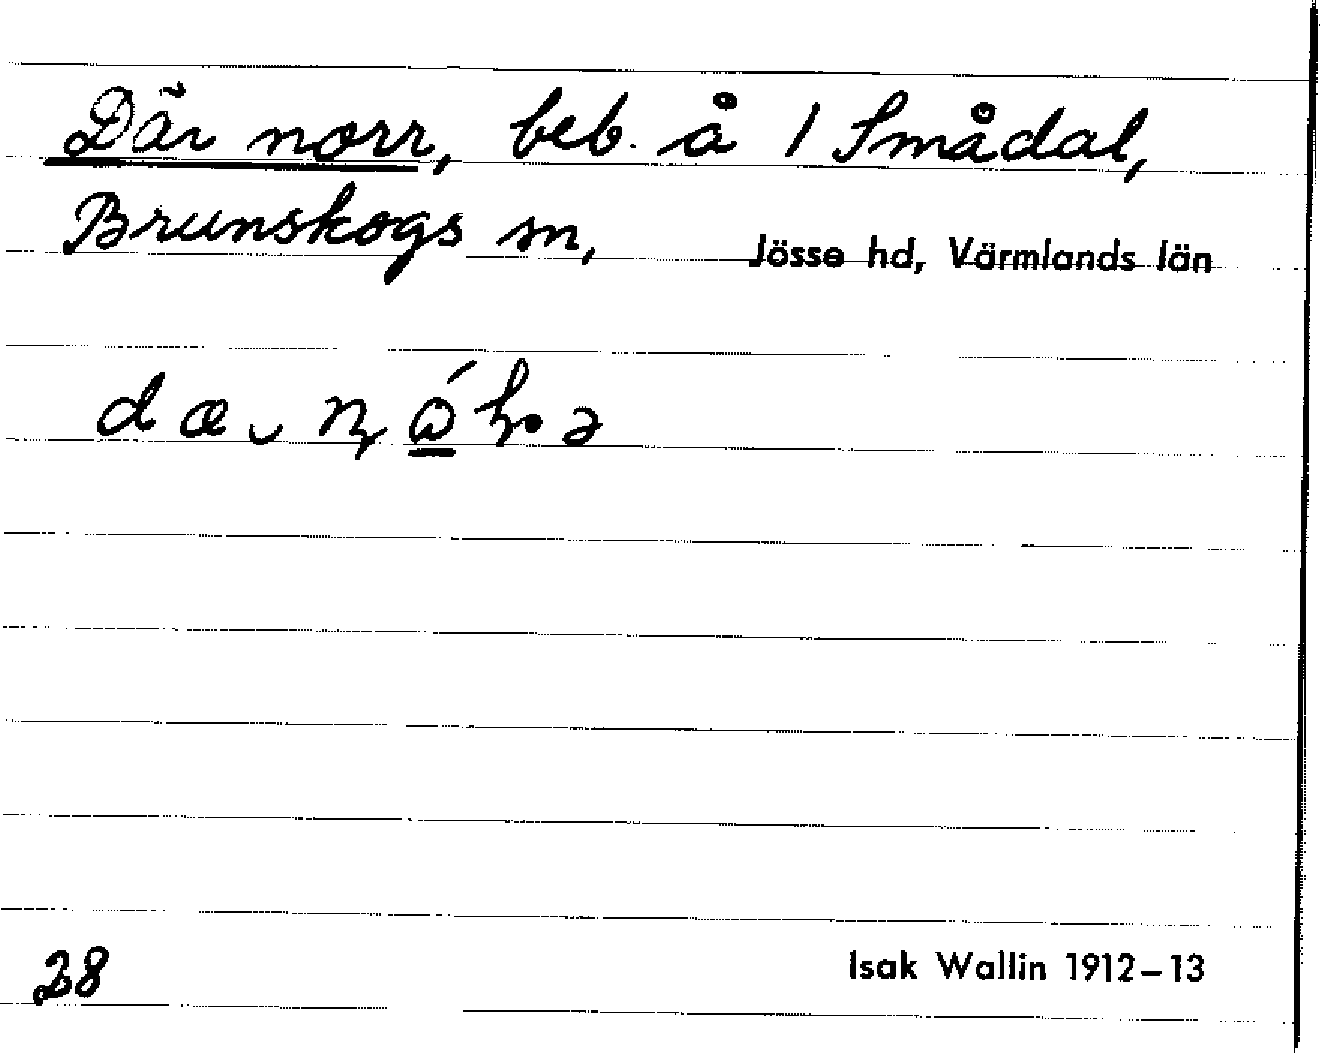 Där norr, beb. å 1 Smådal,
Brunskogs sn, Jösse hd, Värmlands län
28
Isak Wallin 1912–13